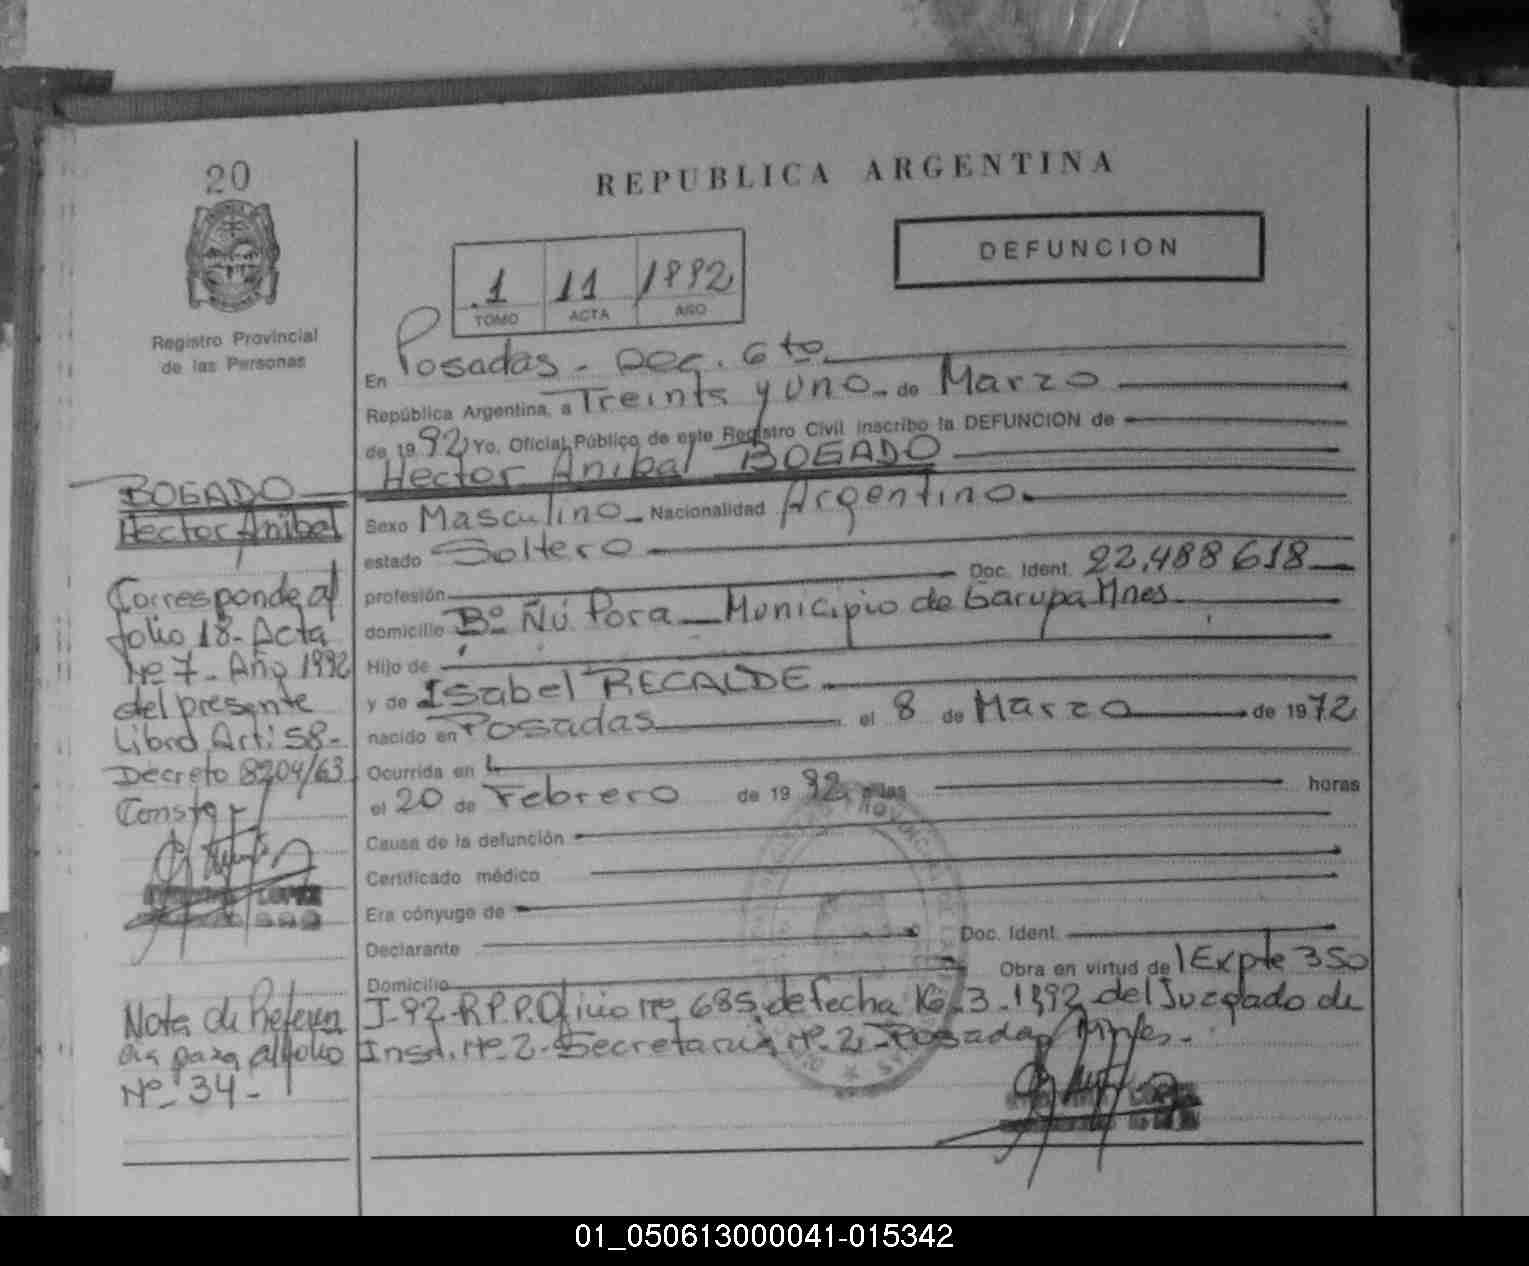 20
Registro Provincial
de las Personas
REPUBLICA ARGENTINA
DEFUNCION
1 11 1992
TOMO ACTA AÑO
En Posadas - Dec. 6to
República Argentina, a Treinta y uno de Marzo
de 1992 Yo, Oficial Público de este Registro Civil inscribo la DEFUNCION de
Hector Anibal BOGADO
Sexo Masculino Nacionalidad Argentino
estado Soltero
profesión Doc. Ident. 22,488618
domicilio Bº Ñú Pora - Municipio de Garupa Mnes.
Hijo de
y de Isabel RECALDE
nacido en Posadas el 8 de Marzo de 1972
Ocurrida en
el 20 de Febrero de 1992 a las horas
Causa de la defunción
Certificado médico
Era cónyuge de
Declarante Doc. Ident.
Domicilio Obra en virtud de Expte 350
J-92-R.P.P. Oficio Nº 685 de fecha 16-3-1992 del Juzgado de
Inst. Nº 2 - Secretaria Nº 2 - Posadas Mnes.
BOGADO
Hector Anibal
Corresponde al
folio 18 - Acta
Nº 7 - Año 1992
del presente
Libro Art: 58 -
Decreto 8204/63
Conste
Nota de Referen
cia para al folio
Nº 34 -
01_050613000041-015342